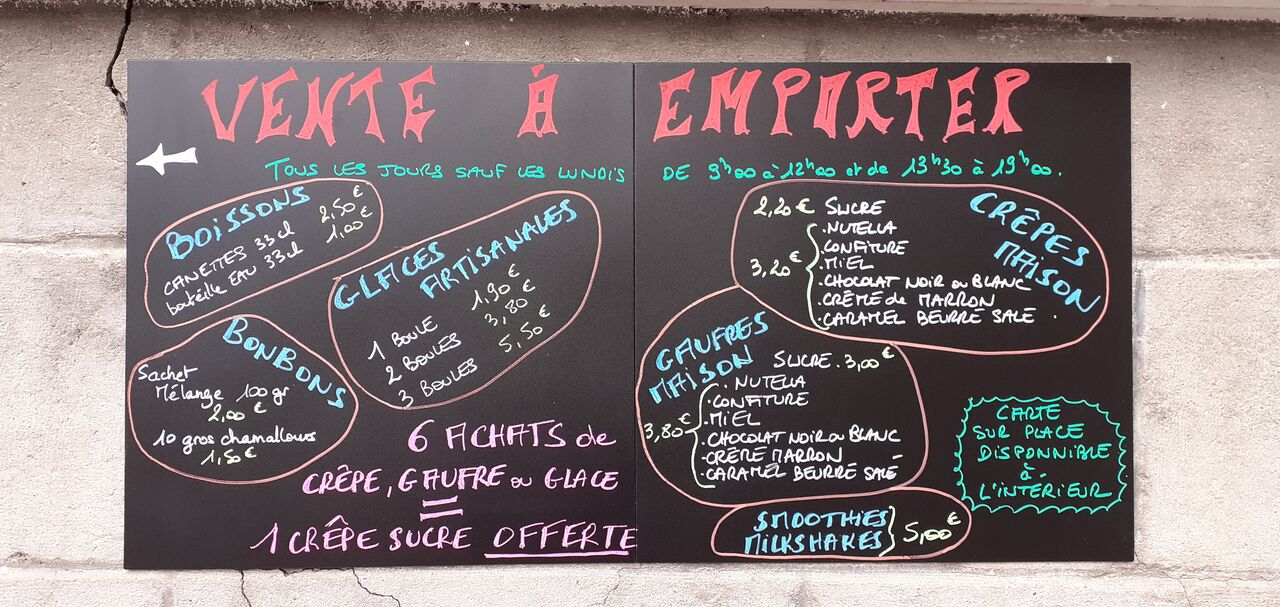 VENTE À EMPORTER
TOUS LES JOURS SAUF LES LUNDIS DE 9h00 à 12h00 et de 13h30 à 19h00.
BOISSONS
CANETTES 33cl 2,50€
bouteille EAU 33cl 1,00€
GLACES
ARTISANALES
1 BOULE 1,90€
2 BOULES 3,80
3 BOULES 5,50€
BONBONS
Sachet
Mélange 100gr
2,00€
10 gros chamallows
1,50€
6 ACHATS de
CRÊPE, GAUFRE ou GLACE
=
1 CRÊPE SUCRE OFFERTE
CRÊPES
MAISON
2,20€ SUCRE
3,20€
.NUTELLA
CONFITURE
.MIEL
.CHOCOLAT NOIR ou BLANC
.CRÊME de MARRON
.CARAMEL BEURRE SALÉ.
GAUFRES
MAISON
SUCRE.3,00€
3,80€
.NUTELLA
.CONFITURE
.MIEL
.CHOCOLAT NOIR ou BLANC
.CRÊME MARRON
.CARAMEL BEURRE SALÉ
SMOOTHIES
MILKSHAKES
5,00€
CARTE
SUR PLACE
DISPONNIBLE
à
L'INTERIEUR